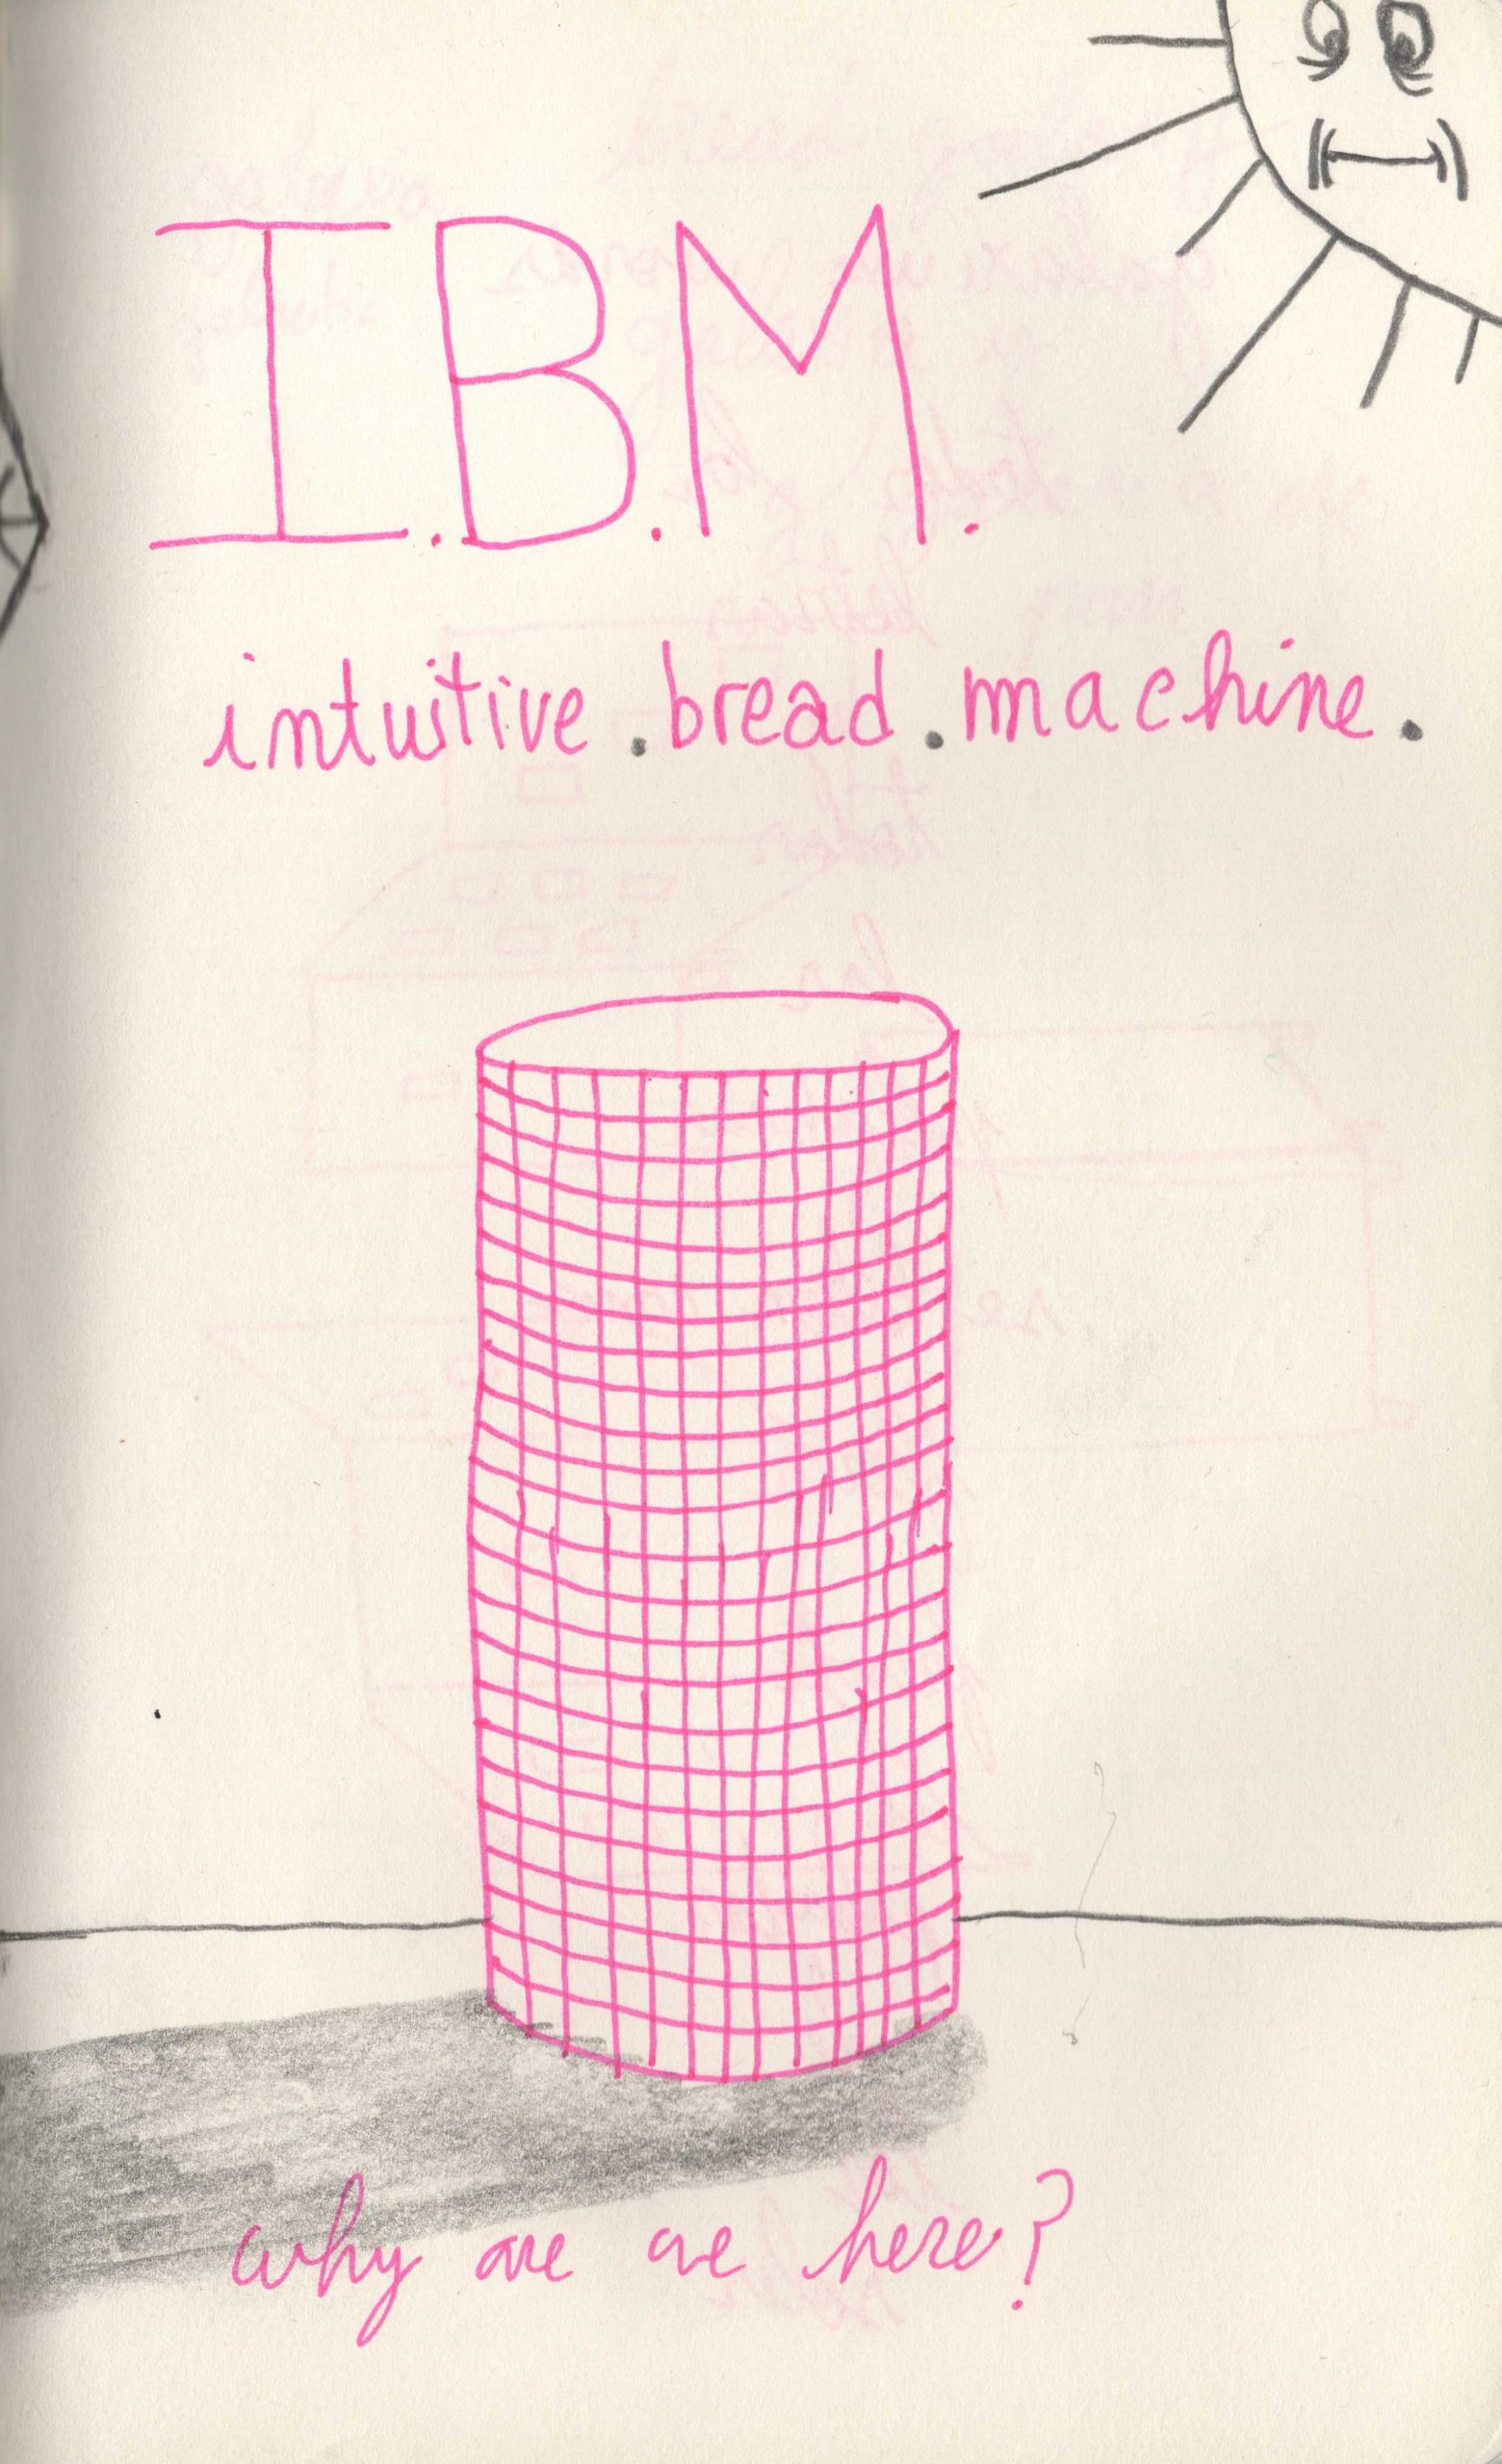 I.B.M.
intuitive.bread.machine.
why are we here?